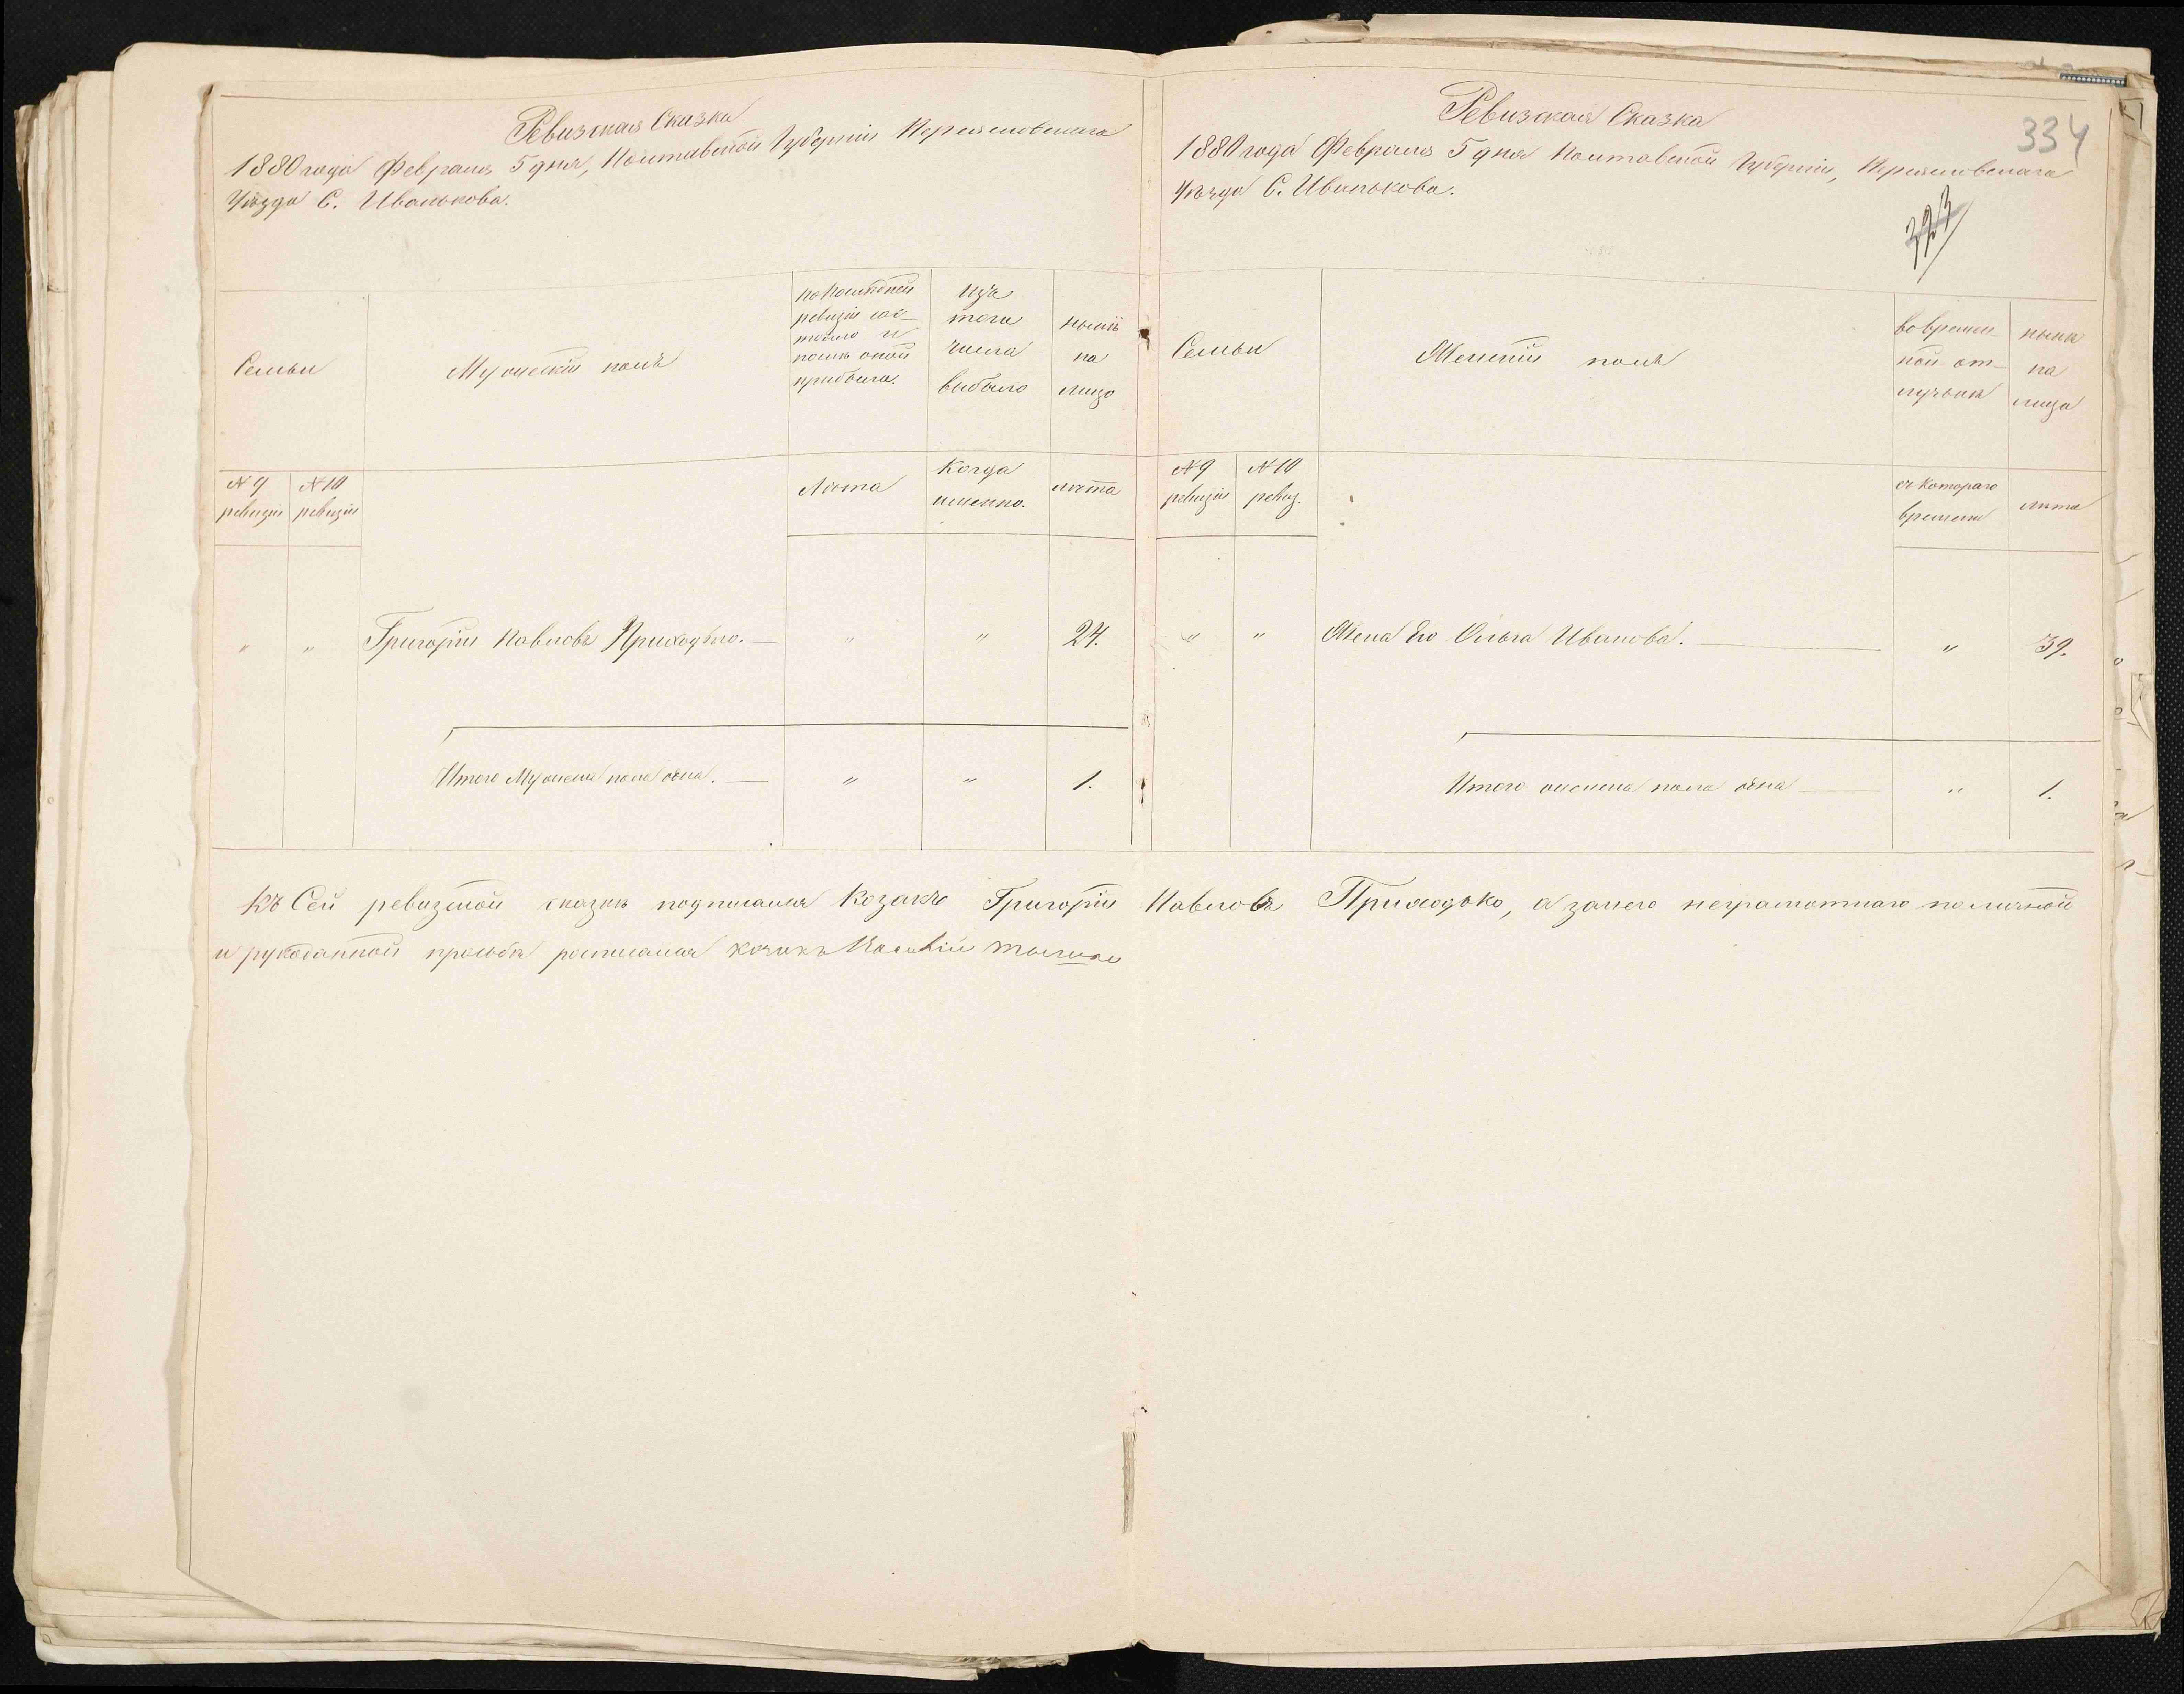 Ревизская Сказка
1880 года Февраля 5 дня, Полтавской Губерніи Переяславскаго
Уѣзда С. Иванькова.
Семьи
Мужескій полъ
по послѣдней
ревизіи сос-
тояло и
послѣ оной
прибыло.
Изъ
того
числа
выбыло
нынѣ
на
лицо
№ 9
ревизіи
№ 10
ревизіи
Лѣта
Когда
именно.
лѣта
" " Григорій Павловъ Приходько. " " 24.
Итого Мужеска пола одна. " " 1.
Ревизская Сказка
334
1880 года Февраля 5 дня Полтавской Губерніи, Переяславскаго
Уѣзда С. Иванькова.
Семьи
Женскій полъ
во времен-
ной от-
лучкѣ
нынѣ
на
лицо
№ 9
ревизіи
№ 10
ревиз.
съ котораго
времени
лѣта
" " Жена Его Ольга Иванова. " 39.
Итого женска пола одна " 1.
Къ Сей ревизской сказкѣ подписался Козакъ Григорій Павловъ Приходько, а за него неграмотнаго по личной
и рукоданной прозьбѣ росписался козакъ